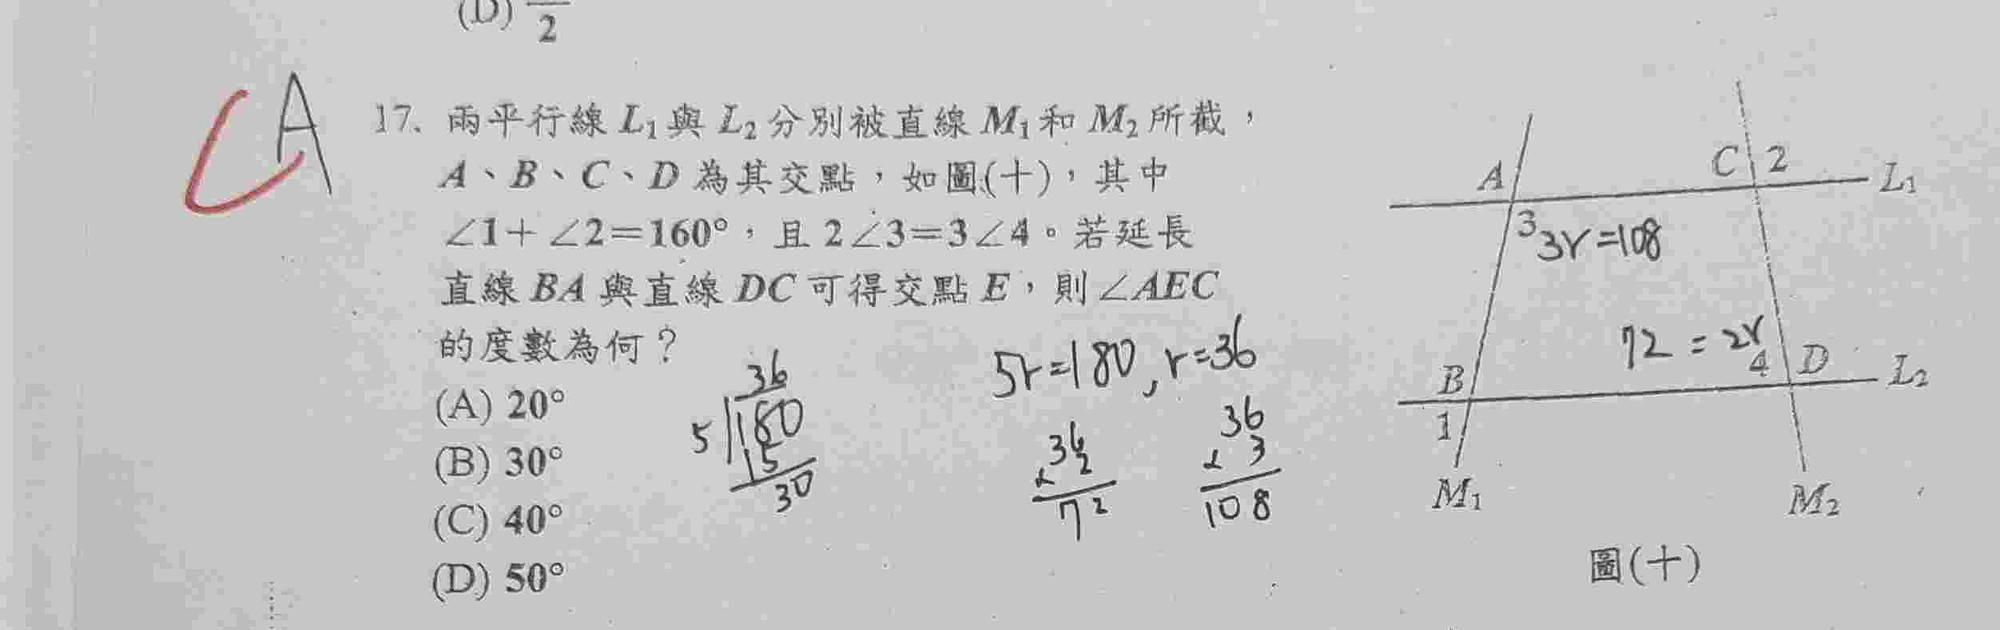 (D) 2
A
17. 兩平行線 L₁ 與 L₂ 分別被直線 M₁ 和 M₂ 所截，
A、B、C、D 為其交點，如圖(十)，其中
∠1+∠2=160°，且 2∠3=3∠4。若延長
直線 BA 與直線 DC 可得交點 E，則∠AEC
的度數為何？
(A) 20°
(B) 30°
(C) 40°
(D) 50°
36
5 180
15
30
5r=180, r=36
36
× 2
72
36
× 3
108
A C 2 L₁
3 3r=108
72=2r
B 4 D L₂
1
M₁ M₂
圖(十)